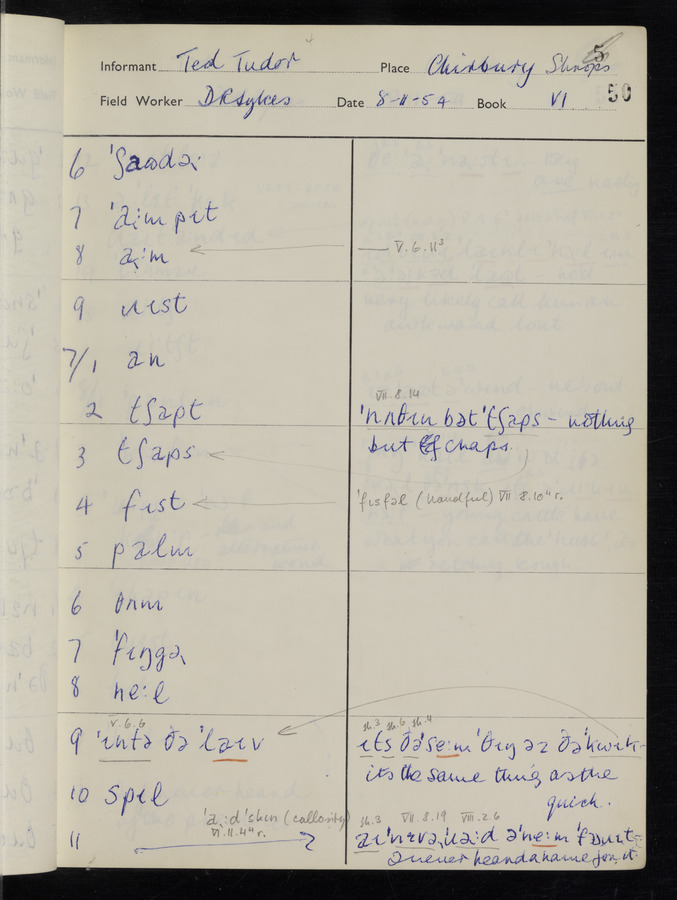 Informant Ted Tudor Place Chirbury Shrops 5
Field Worker DRSykes Date 8-11-54 Book VI 50
6 ˈʃaʊdəɹ
7 ˈaːmpɪt
8 aːm ← — V.6.11³
9 ɹɪst
7/1 an
VII.8.14
2 tʃapt ˈnʌθɪn bət ˈtʃaps – nothing
but chaps.
3 tʃaps ←
4 fɪst ← ˈfɪsfəl (handful) VII 8.10 r.
5 palm
6 θʌm
7 ˈfɪŋgə
8 neːl
V.6.6
9 ˈɪntə ðə ˈlaɪv ← ɪts ðə ˈseːm ˈθɪŋ əz ðə ˈkwɪk –
its the same thing as the
quick.
10 spɛl
ˈaːd ˈskɪn (callosity)
VI.11.4 r.
VII.8.19 VIII.2.6
11
a never heard a name for it.